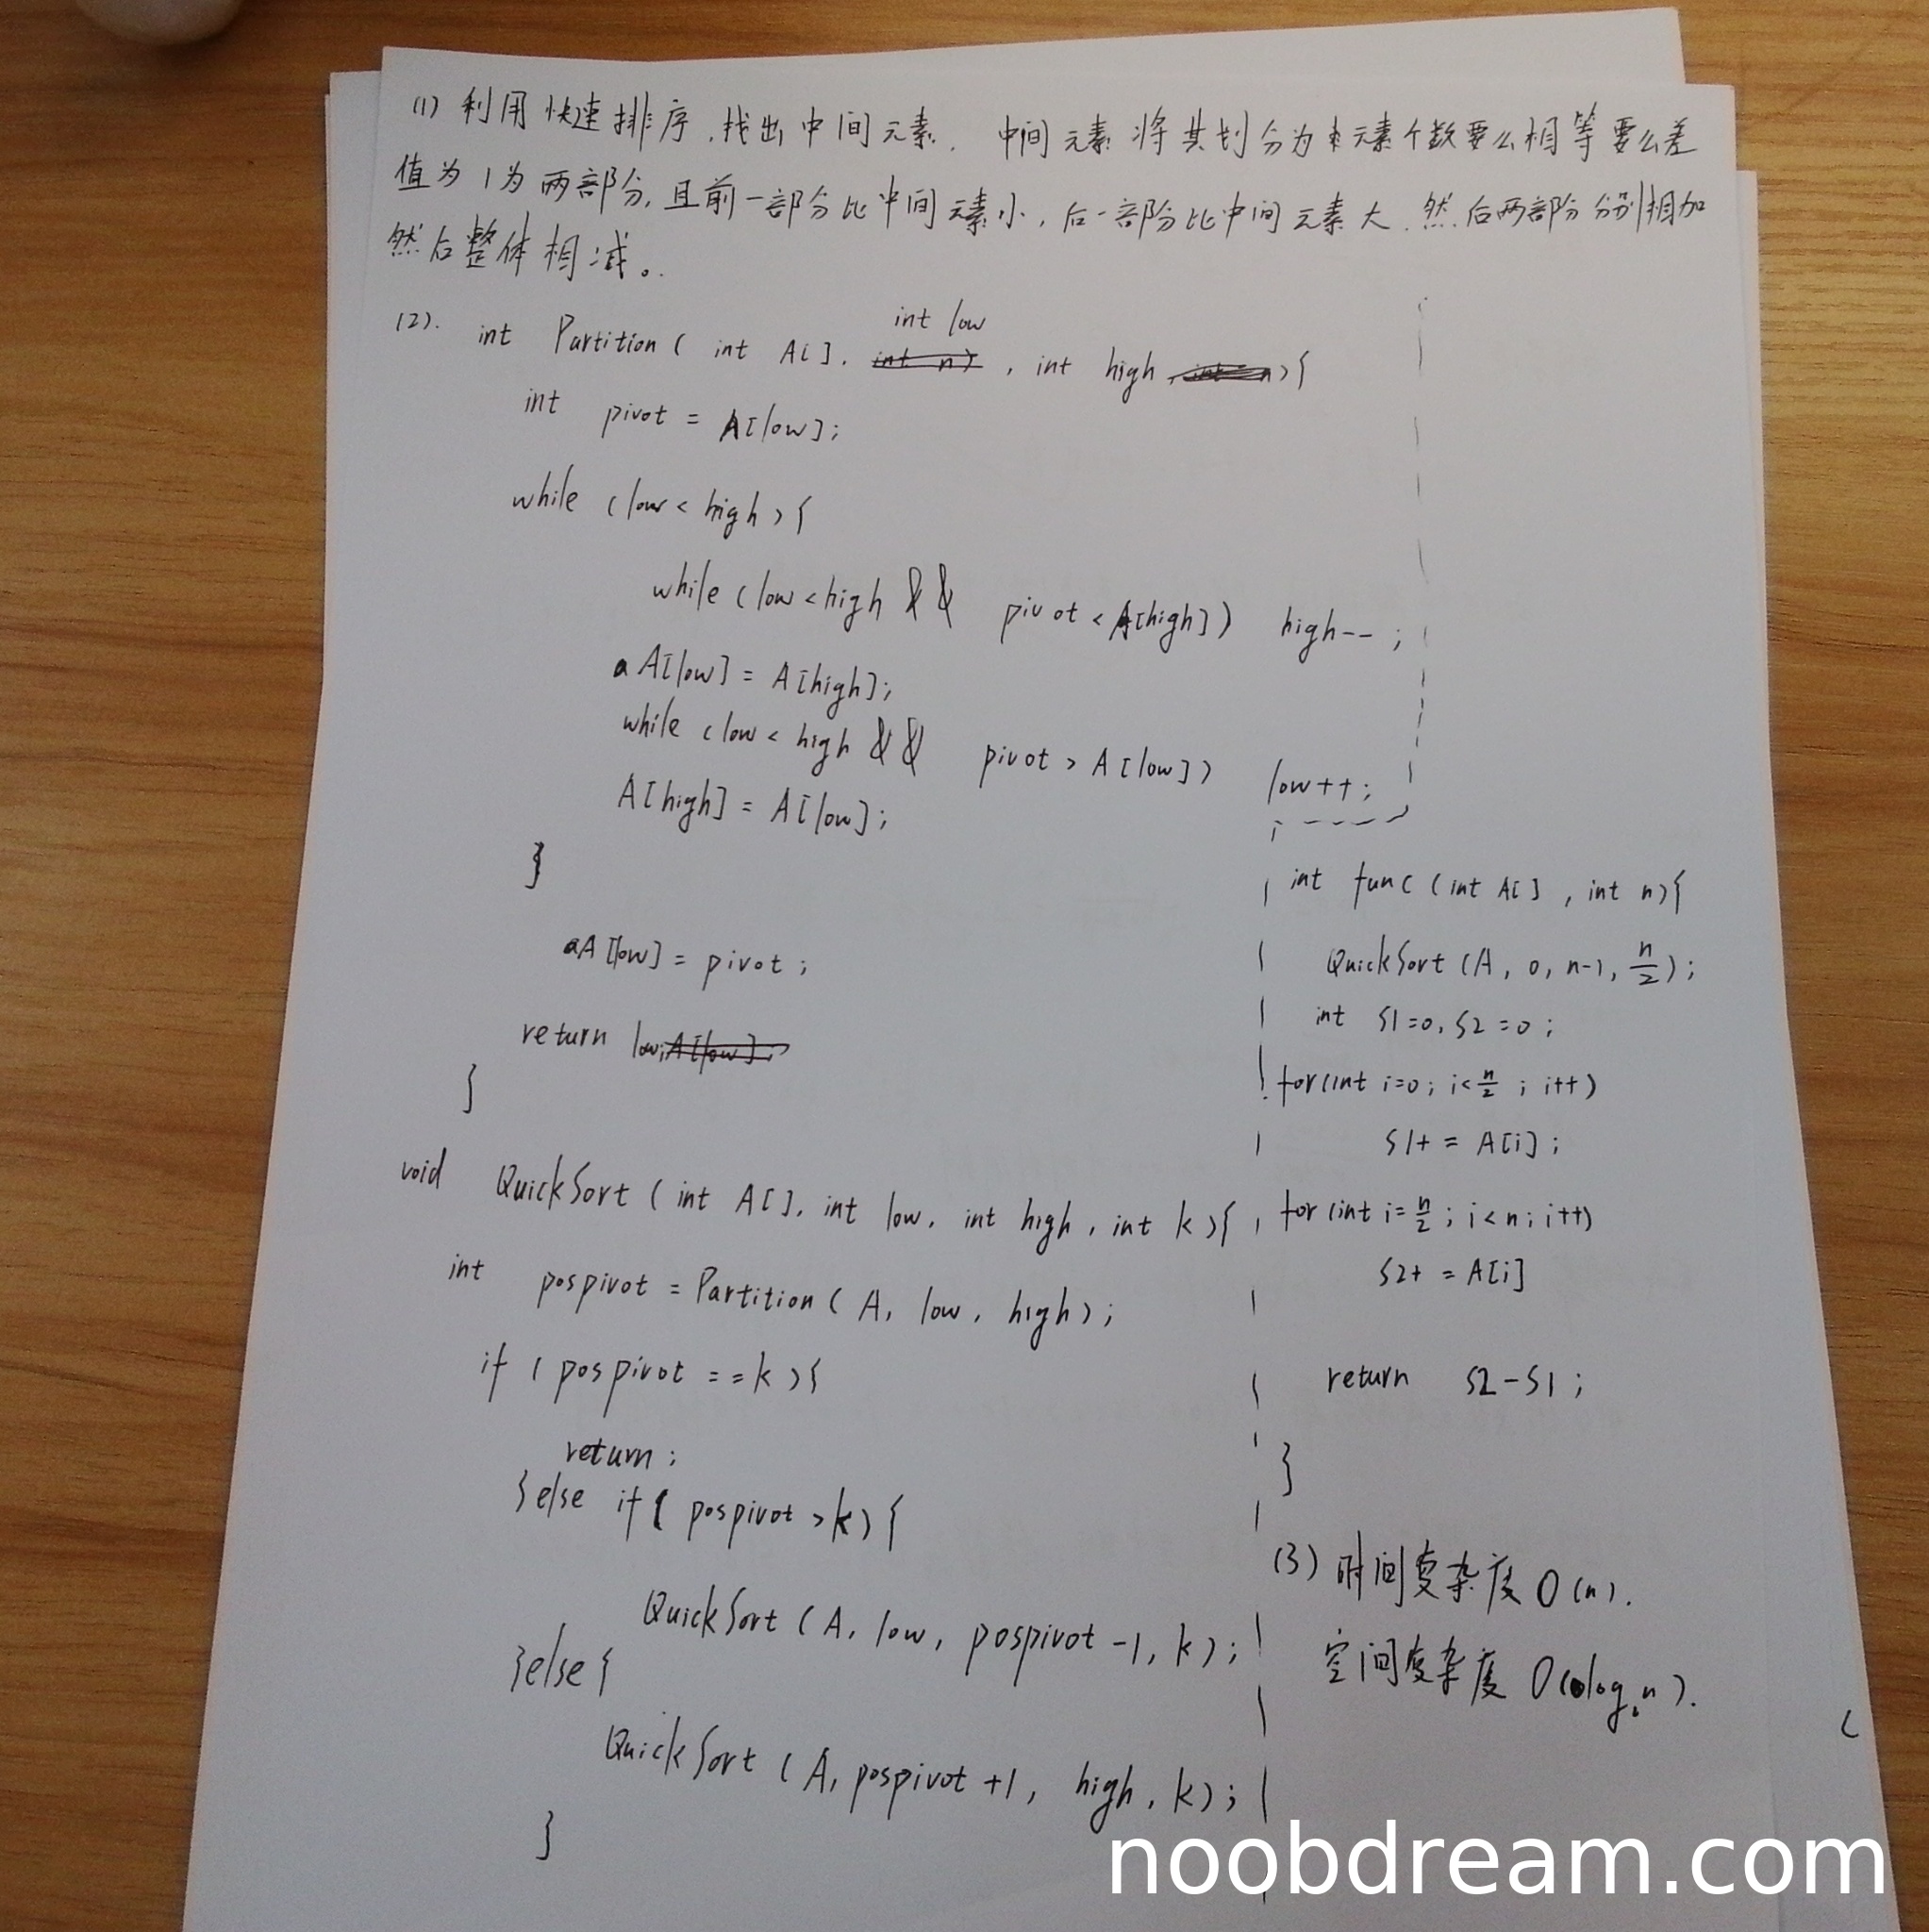 (1) 利用快速排序,找出中间元素. 中间元素将其划分为元素个数要么相等要么差
值为1为两部分,且前一部分比中间元素小,后一部分比中间元素大.然后两部分分别相加
然后整体相减。
(2). int Partition( int A[], int low , int high ){
int pivot = A[low];
while (low < high) {
while (low < high && pivot < A[high]) high--;
A[low] = A[high];
while (low < high && pivot > A[low]) low++;
A[high] = A[low];
}
A[low] = pivot;
return low;
}
void QuickSort ( int A[], int low, int high, int k){
int pospivot = Partition( A, low, high);
if ( pospivot == k ){
return;
}else if( pospivot > k){
QuickSort (A, low, pospivot -1, k);
}else{
QuickSort (A, pospivot +1, high, k);
}
int func (int A[] , int n){
QuickSort (A, 0, n-1, n/2);
int S1=0, S2=0;
for(int i=0; i<n/2 ; i++)
S1+ = A[i];
for(int i=n/2; i<n; i++)
S2+ = A[i]
return S2-S1;
}
(3) 时间复杂度 O(n).
空间复杂度 O(log₂n).
noobdream.com